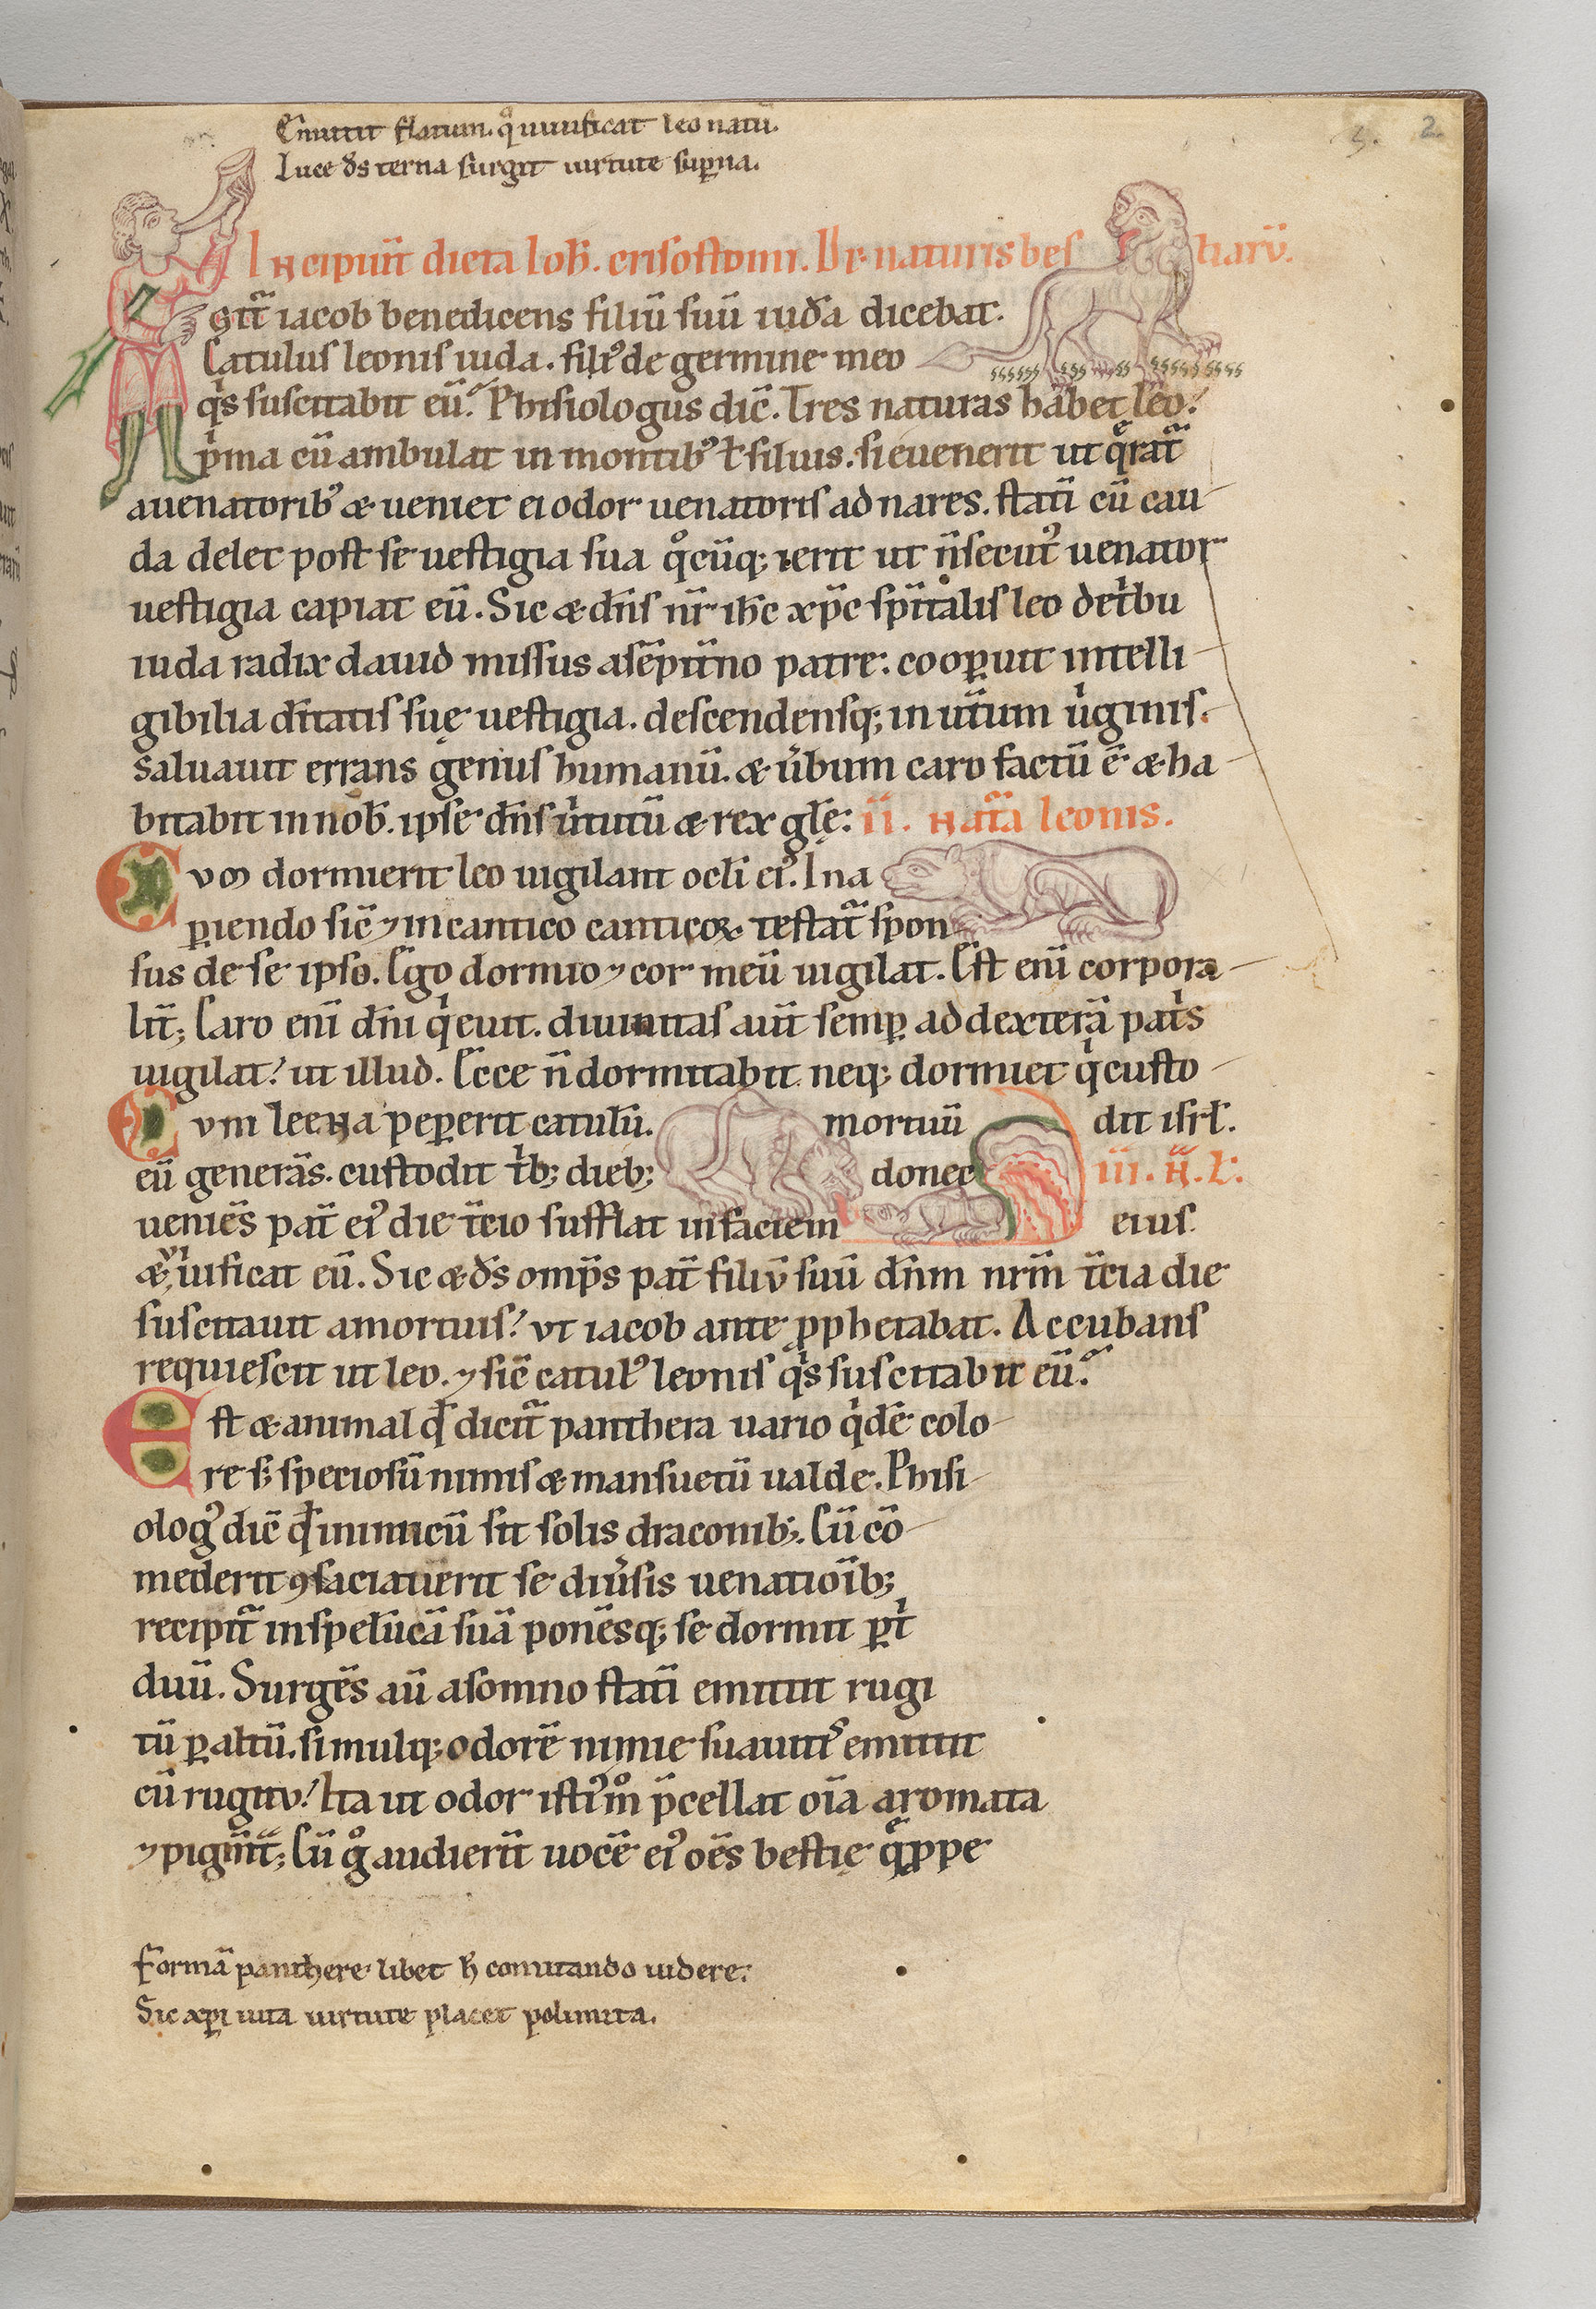 Emittit flatum. q̊ uiuificat leo natū.
Luce d̄s terna surgit uirtute sup̱na.
5. 2
Incipiūt dicta Ioh̄. crisostomi. De naturis bes tiarū.
gitᷓ iacob benedicens filiū suū iuda dicebat.
Catulus leonis iuda. fili᾽ de germine meo
qͥs suscitabit eū? Phisiologus dic̄. Tres naturas habet leo.
pͥma cū ambulat in montib᾽ ł siluis. si euenerit ut qᷓratᷓ
a uenatorib᾽ & ueniet ei odor uenatoris ad nares. statī cū cau
da delet post se uestigia sua q̊cūq; ierit ut n̄ secut᾽ uenator
uestigia capiat eū. Sic & dn̄s nr̄ ih̄c xp̄c sp̄italis leo de tͥbu
iuda radix dauid missus a sēpit̄no patre. coop̱uit intelli
gibilia dn̄itatis suę uestigia. descendensq; in ut̄um uͥginis.
saluauit errans genus humanū. & u̓bum caro factū ē & ha
bitabit in nob̄. ipse dn̄s uͥtutū & rex gl̄ę: II. natᷓa leonis.
Cum dormierit leo uigilant ocl̄i ei᾽. In a
p̱iendo sic̄ ⁊ in cantico canticoꝝ testatᷓ spon
sus de se ipso. Ego dormio ⁊ cor meū uigilat. Est enī corpora
lit̄; Caro enī dn̄i qͥeuit. diuinitas aūt semp̱ ad dexterā patͥs
uigilat. ut illud. Ecce n̄ dormitabit neq; dormiet qͥ custo
Cum leena pep̱erit catulū. mortuū dit isrł.
eū generās. custodit tͥb; dieb; donec III. N̄. L:
ueniēs pat̄ ei᾽ die t̄cio sufflat in faciem eius.
& uiuificat eū. Sic & d̄s omp̄s pat̄ filiū suū dn̄m nrm̄ t̄cia die
suscitauit a mortuis. ut iacob ante ꝓphetabat. Accubans
requiescit ut leo. ⁊ sic̄ catul᾽ leonis qͥs suscitabit eū?
Est & animal qđ dicitᷓ panthera uario qͥdē colo
re s; speciosū nimis & mansuetū ualde. Phisi
olog᾽ dic̄ qđ inimicū sit solis draconib;. Cū cō
mederit ⁊ saciauerit se diu̓sis uenatioīb;
recipitᷓ in speluncā suā ponēsq; se dormit p̱ tͥ
duū. Surgēs aū a somno statī emittit rugi
tū p̱ altū. simulq; odorē nimie suauitͥs emittit
cū rugitu. Ita ut odor isti᾽m̊ p̄cellat oīa aromata
⁊ pigm̄t̄; Cū g̊ audierīt uocē ei᾽ oēs bestię qᷓ ꝓpe
Formā panthere libet h̄ comitando uidere.
Sic xp̄i uita uirtute placet polimita.